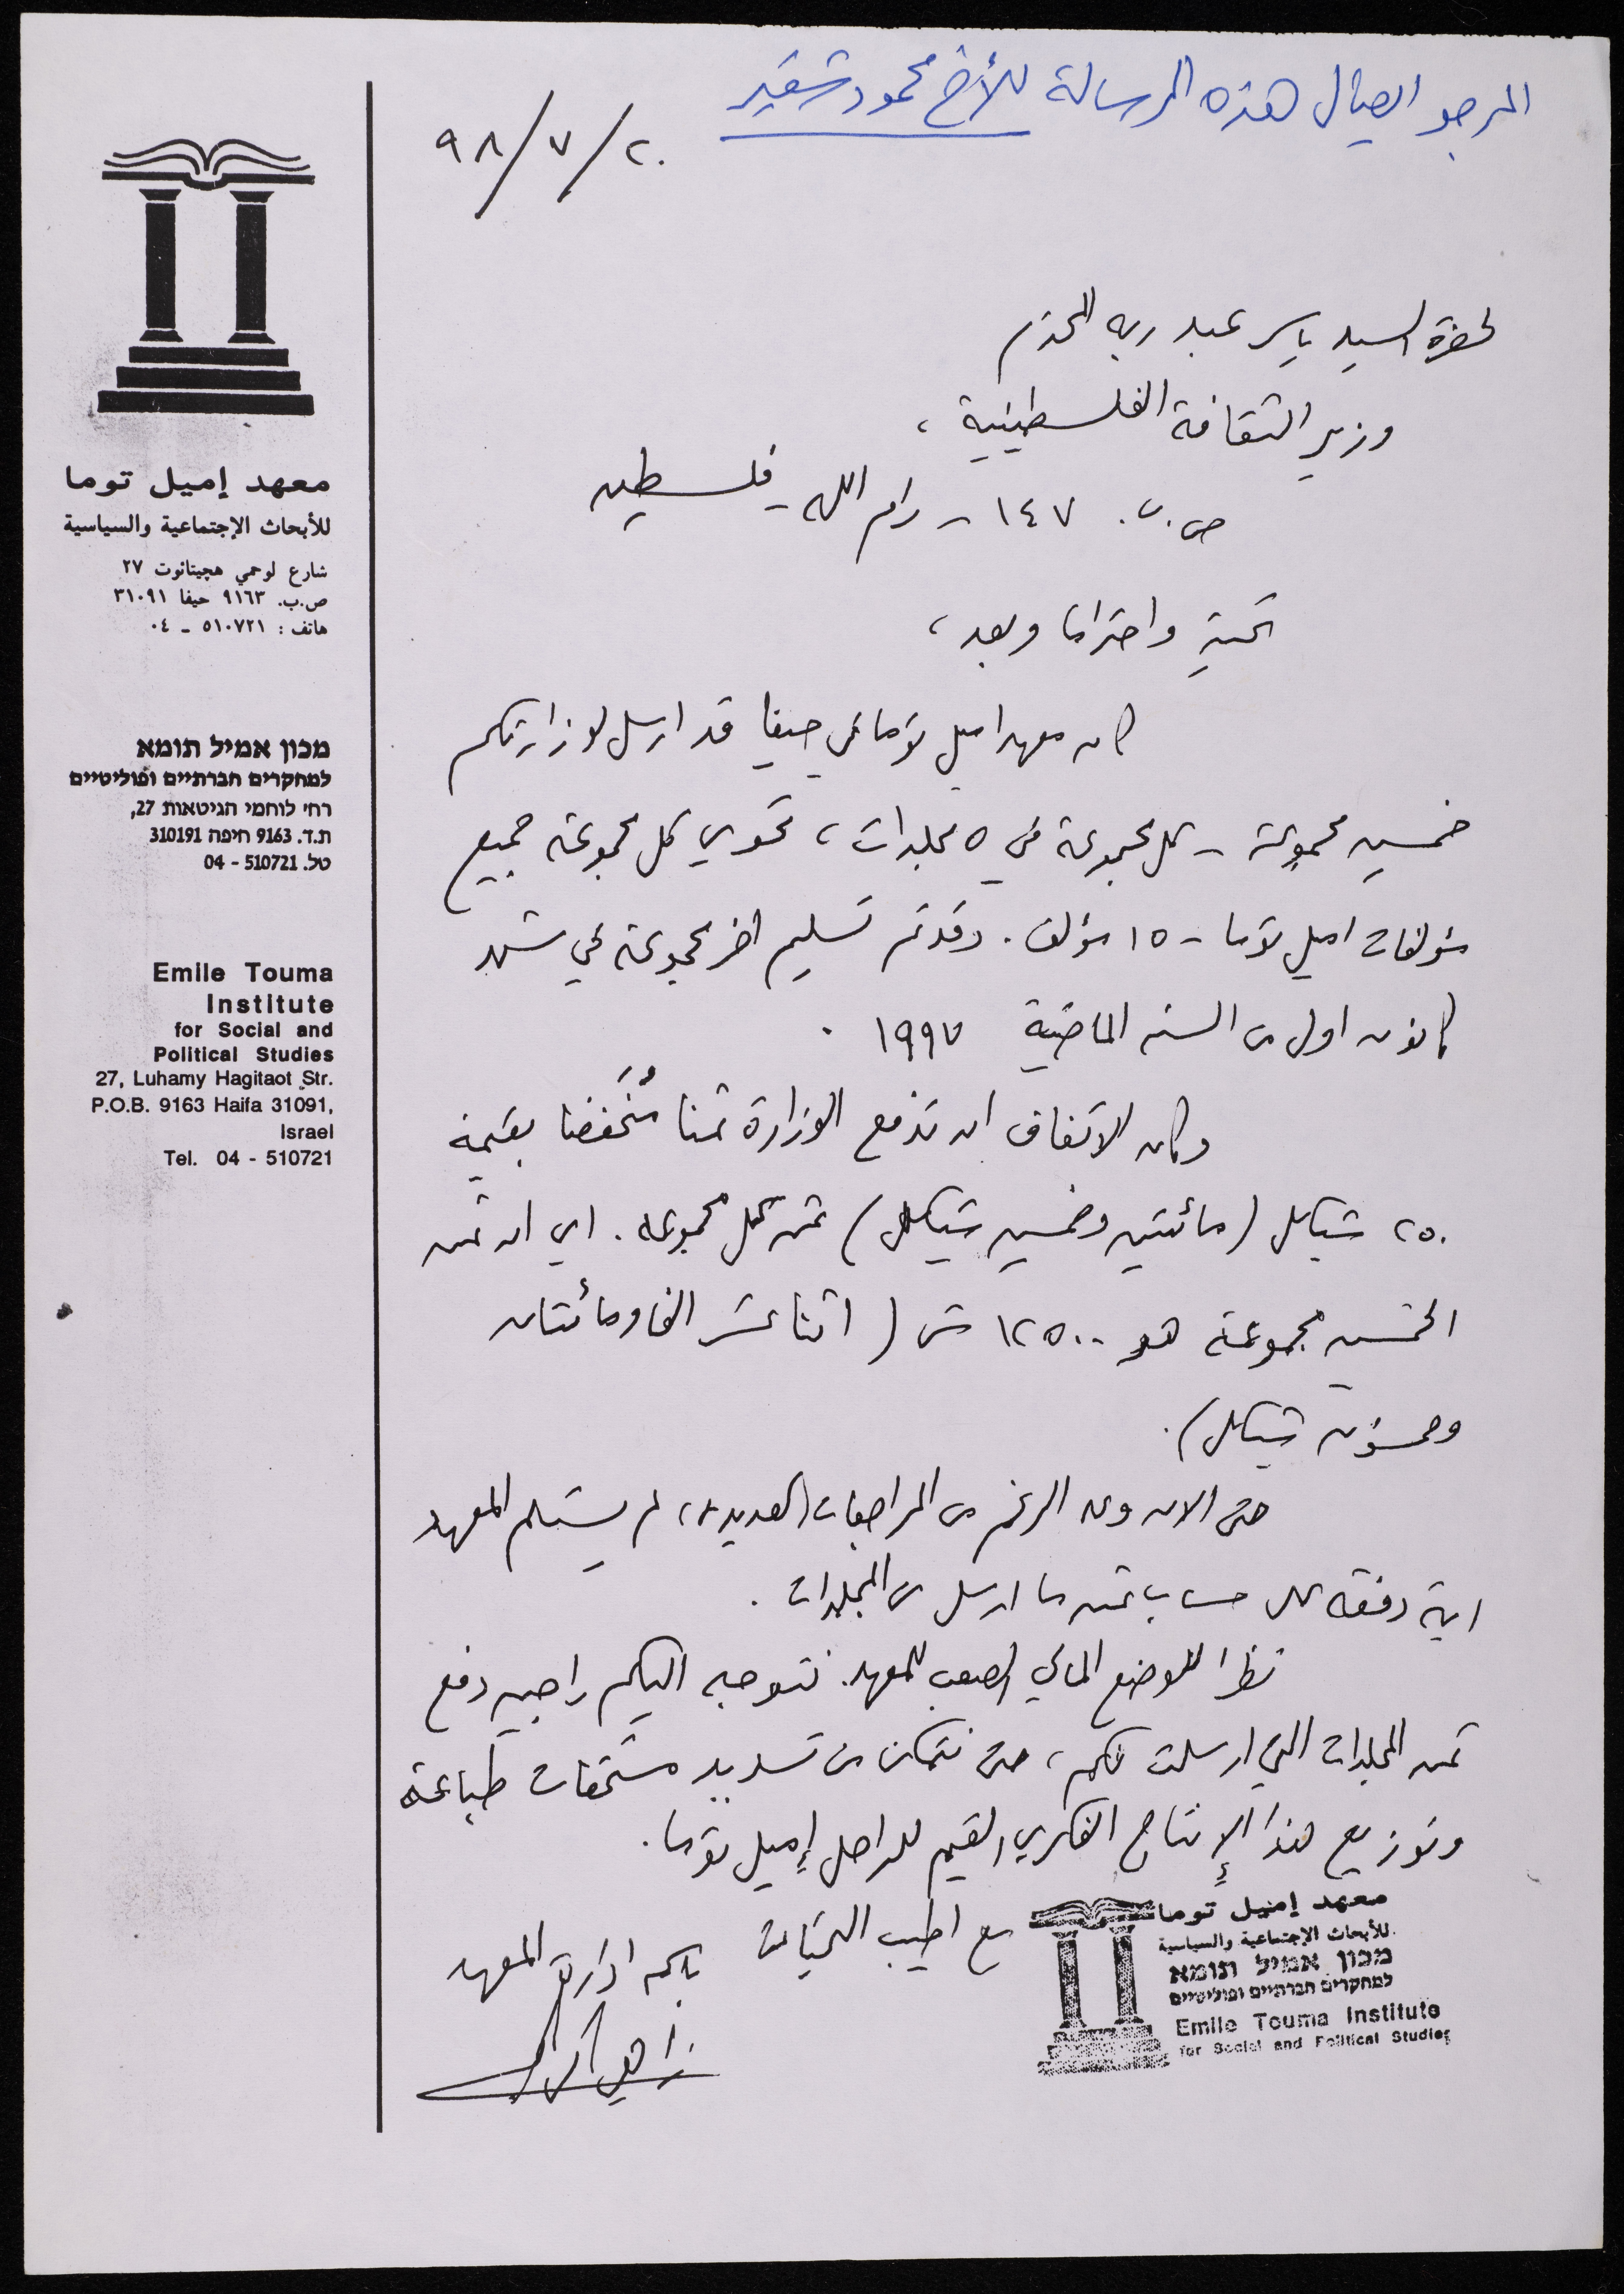 المرجو ايصال هذه الرسالة للأخ محمود شقير
٢٠/٧/٩٨
معهد إميل توما
للأبحاث الإجتماعية والسياسية
شارع لوحمي هجيتائوت ٢٧
ص.ب. ٩١٦٣ حيفا ٣١٠٩١
هاتف : ٥١٠٧٢١ - ٠٤
מכון אמיל תומא
למחקרים חברתיים ופוליטיים
רחי לוחמי הגיטאות 27,
ת.ד. 9163 חיפה 310191
טל. 510721 - 04
Emile Touma
Institute
for Social and
Political Studies
27, Luhamy Hagitaot Str.
P.O.B. 9163 Haifa 31091,
Israel
Tel. 04 - 510721
لحضرة السيد ياسر عبد ربه المحترم
وزير الثقافة الفلسطينية ،
ص.ب. ١٤٧ - رام الله - فلسطين
تحية واحتراما وبعد ،
كان معهد اميل توما في حيفا قد ارسل لوزارتكم
خمسين مجموعة - كل مجموعة في ٥ مجلدات ، تحوي كل مجموعة جميع
مؤلفات اميل توما - ١٥ مؤلف . وقد تم تسليم اخر مجموعة في شهر
كانون اول من السنة الماضية ١٩٩٧ .
وكان الاتفاق ان تدفع الوزارة ثمنا مُنخَفضا بقيمة
٢٥٠ شيكل (مائتين وخمسين شيكل) ثمن كل مجموعة . اي ان ثمن
الخمسين مجموعة هو ١٢٥٠٠ ش ( اثنا عشر الفا ومائتان
وخمسون شيكل) .
حتى الان وعلى الرغم من المراجعات العديدة ، لم يستلم المعهد
اية دفعة على حساب ثمن ما ارسل من المجلدات .
نظرا للوضع المالي الصعب للمعهد . نتوجه اليكم راجين دفع
ثمن المجلدات التي ارسلت لكم ، حتى نتمكن من تسديد مستحقات طباعة
وتوزيع هذا الإنتاج الفكري القيم للراحل إميل توما .
مع اطيب التحيات
باسم ادارة المعهد
معهد إميل توما
للأبحاث الإجتماعية والسياسية
מכון אמיל תומא
למחקרים חברתיים ופוליטיים
Emile Touma Institute
for Social and Political Studies